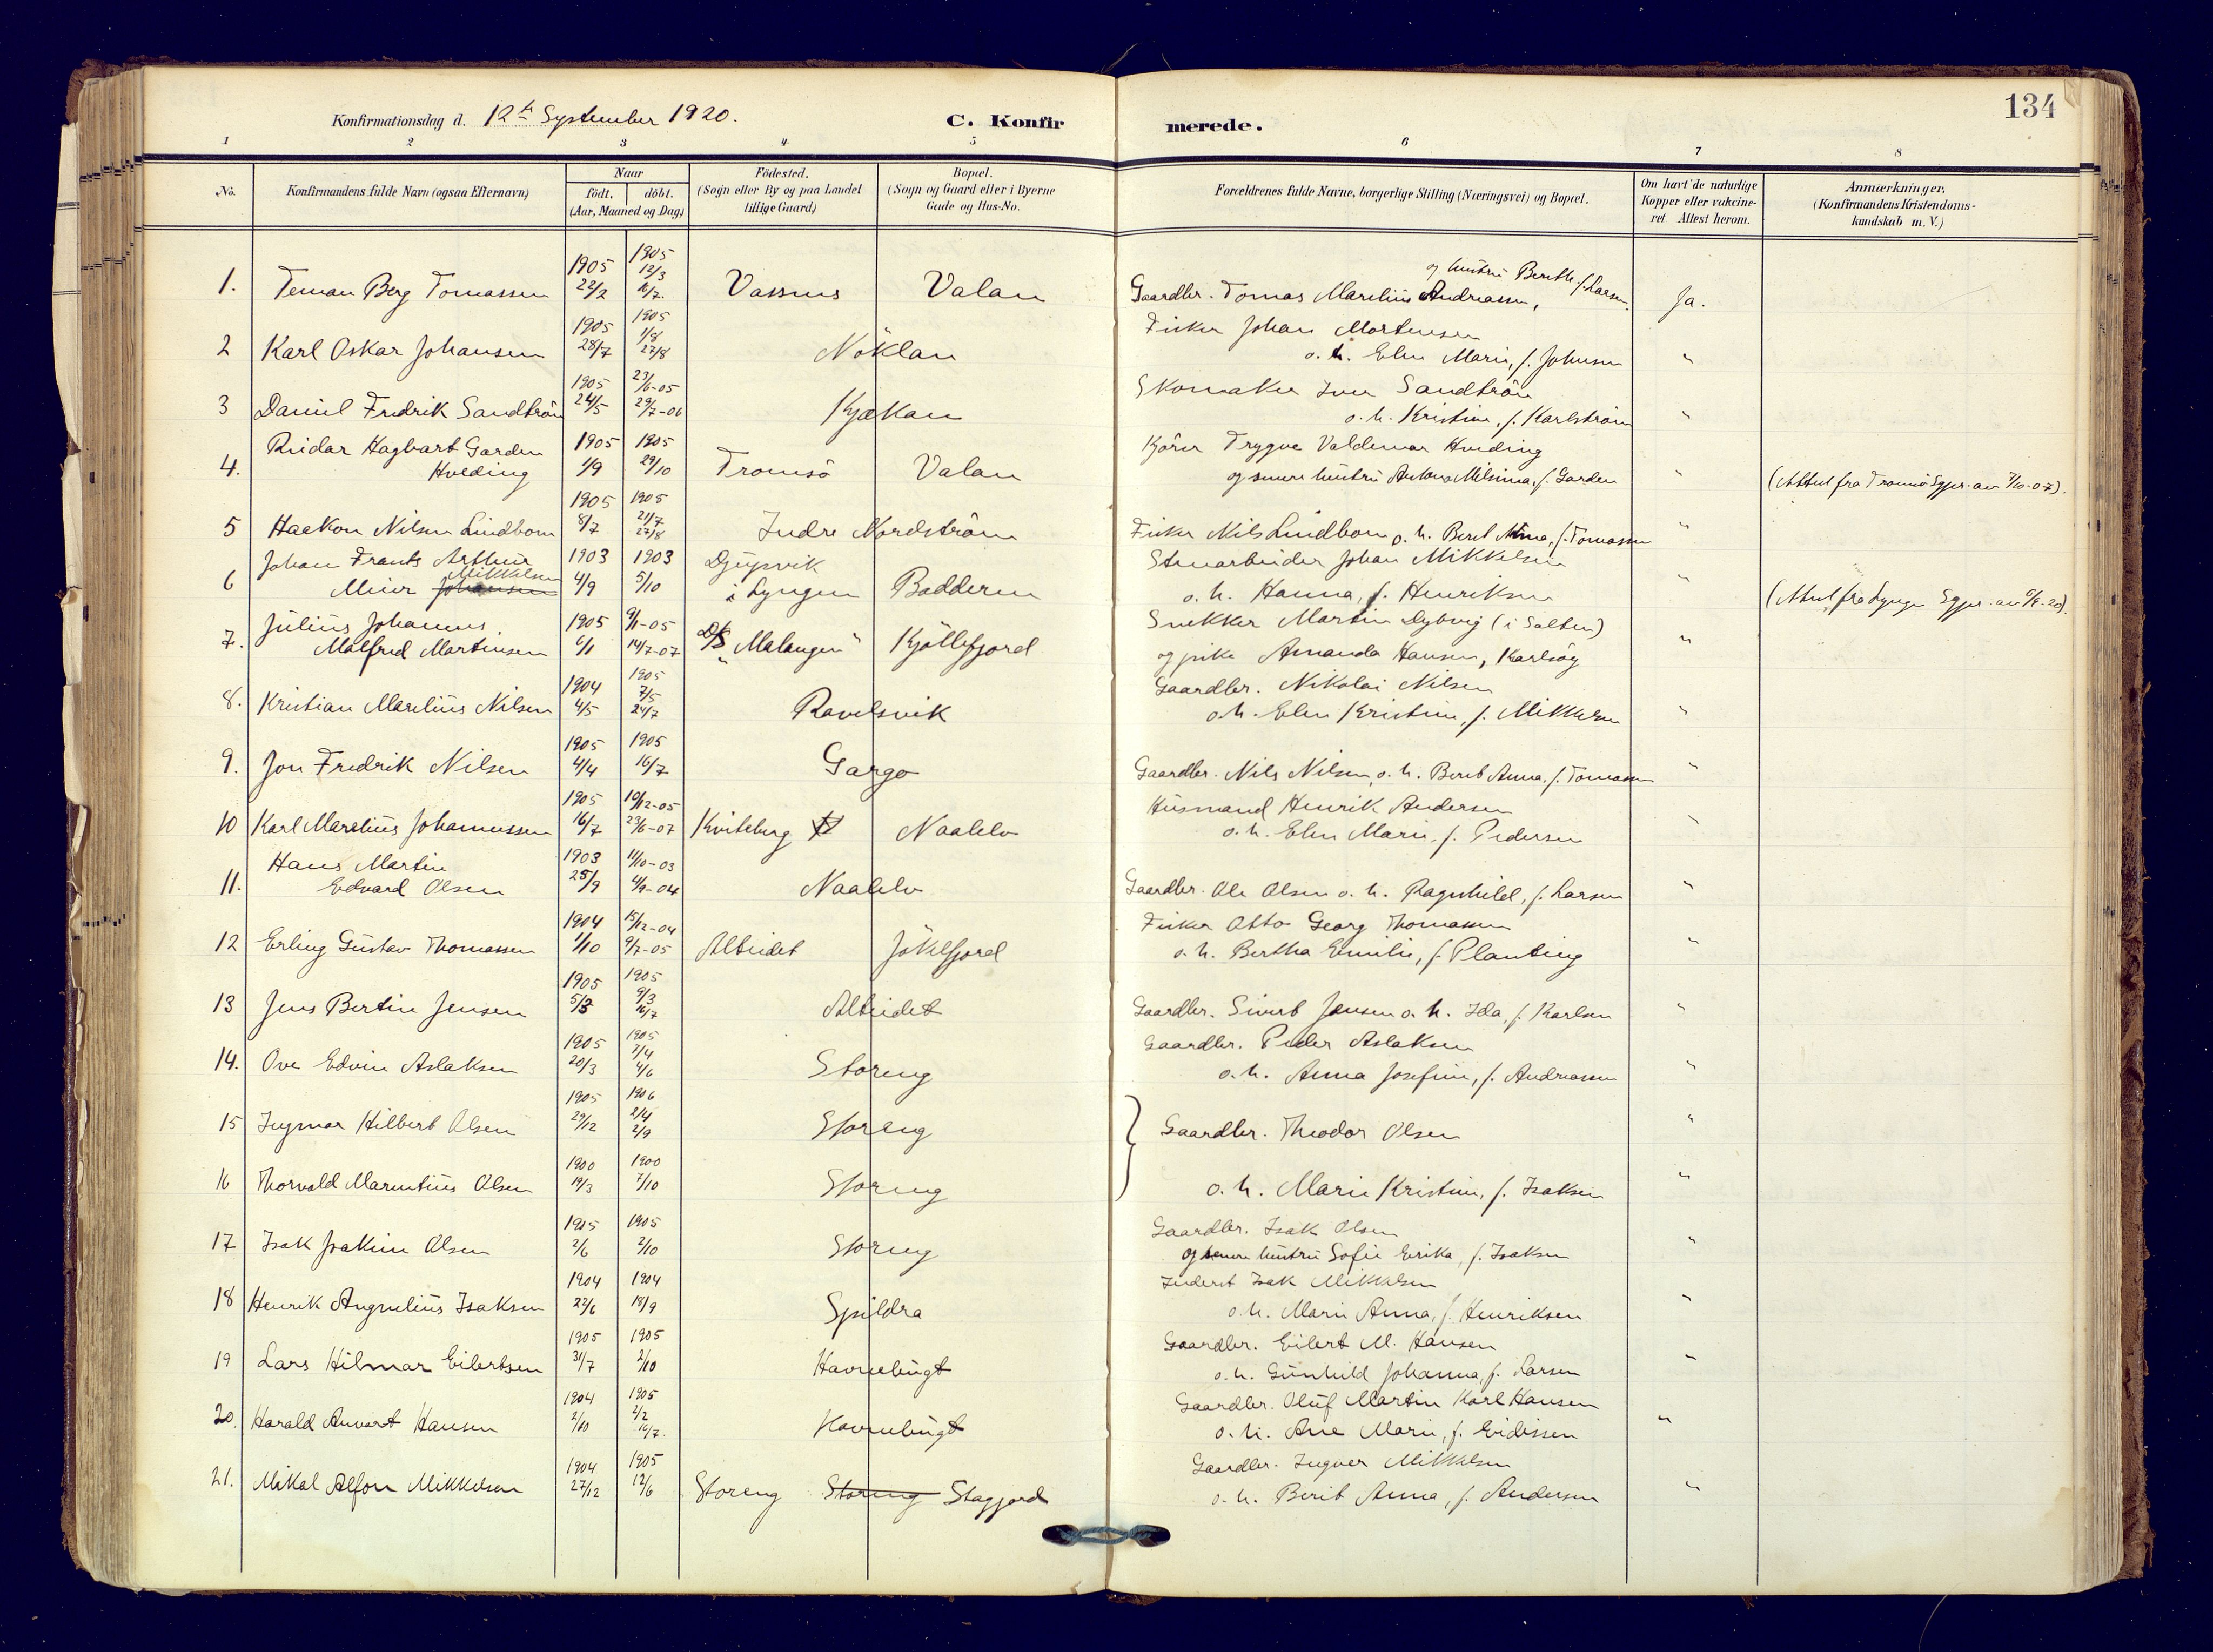 134
Konfirmationsdag d. 12te September 1920. C. Konfirmerede.
1 2 3 4 5 6 7 8
No. Konfirmandens fulde Navn (ogsaa Efternavn) Naar födt, döbt. (Aar, Maaned og Dag) Födested. (Sogn eller By og paa Landet tillige Gaard) Bopæl. (Sogn og Gaard eller i Byerne Gade og Hus-No. Forældrenes fulde Navne, borgerlige Stilling (Næringsvei) og Bopæl. Om havt de naturlige Kopper eller vaccineret. Attest herom. Anmærkninger. (Konfirmandens Kristendomskundskab m. V.)
og hustru Berith f. Larsen.
1. Teman Berg Tomassen 1905 22/2 1905 12/3 16/7. Vassnes Valan Gaardbr. Tomas Marelius Andreassen, Ja.
2 Karl Oskar Johansen 1905 28/7 1905 1/8 27/8 Nöklan Fisker Johan Mortensen
o. h. Elen Marie, f. Johnsen "
3 Daniel Fredrik Sandström 1905 24/5 23/6-05 29/7-06 Kjækan Skomaker Iver Sandström
o. h. Kristine, f. Karlström "
Reidar Hagbart Garden 1905 1905 Kjörer Trygve Valdemar Hveding
4. Hveding 1/9 29/10 Tromsö Valan og senere hustru Antona Milsina, f. Garden " (Attest fra Tromsö Sgpr. av 7/10-07).
5 Haakon Nilsen Lindbom 1905 8/7 1905 21/7 27/8 Indre Nordström Fisker Nils Lindbom o. h. Berit Anna, f. Tomassen "
Johan Frants Arthur 1903 1903 Djupvik Stenarbeider Johan Mikkelsen
6 Meier Johansen Mikkelsen 4/9 5/10 i Lyngen Badderen o. h. Hanna, f. Henriksen " (Attest fra Lyngen Sgpr. av
Julius Johannes 1905 9/1-05 Snekker Martin Dybvig (i Salten)
7. Malfred Martinsen 6/1 14/7-07 D/S "Malangen" Kjöllefjord og pike Amanda Hansen, Karlsöy "
8. Kristian Marelius Nilsen 1904 4/5 1905 7/5 24/7 Ravelsvik Gaardbr. Nikolai Nilsen
o. h. Elen Kristine, f. Mikkelsen "
9. Jon Fredrik Nilsen 1905 4/4 1905 16/7 Gargo Gaardbr. Nils Nilsen o. h. Berit Anna, f. Tomassen "
10 Karl Marelius Johannessen 1905 16/7 19/12-05 23/6-07 Kviteberg Naalelv Husmand Henrik Andersen
o. h. Elen Marie, f. Pedersen "
Hans Martin 1903 11/10-03
11. Edvard Olsen 25/9 4/9-04 Naalelv Gaardbr. Ole Olsen o. h. Ragnhild, f. Larsen "
12 Erling Gustav Thomassen 1904 1/10 15/12-04 9/7-05 Alteidet Jökelfjord Fisker Otto Georg Thomassen
o. h. Bertha Emilie, f. Planting "
13 Jens Bertin Jensen 1905 5/3 1905 9/3 16/7 Alteidet Gaardbr. Sivert Jensen o. h. Ida, f. Karlsen "
14. Ove Edvin Aslaksen 1905 20/3 1905 7/4 4/6 Storeng Gaardbr. Peder Aslaksen
o. h. Anna Josefine, f. Andreassen "
15 Ingmar Hilbert Olsen 1905 29/12 1906 2/4 2/9 Storeng Gaardbr. Theodor Olsen "
16 Thorvald Marentius Olsen 1900 19/3 1900 7/10 Storeng o. h. Marie Kristine, f. Isaksen "
17 Isak Joakim Olsen 1905 2/6 1905 2/10 Storeng Gaardbr. Isak Olsen
og senere hustru Sofie Erika, f. Isaksen "
18 Henrik Angnelius Isaksen 1904 22/6 1904 18/9 Spildra Inderst Isak Mikkelsen
o. h. Marie Anna, f. Henriksen "
19 Lars Hilmar Eilertsen 1905 31/7 1905 2/10 Havnebugt Gaardbr. Eilert M. Hansen
o. h. Gunhild Johanna, f. Larsen "
20. Harald Anvart Hansen 1904 2/10 1905 2/2 16/7. Havnebugt Gaardbr. Oluf Martin Karl Hansen
o. h. Ane Marie, f. Eidissen "
21. Mikal Alfon Mikkelsen 1904 27/12 1905 12/6 Storeng Storeng Stagjord Gaardbr. Ingver Mikkelsen
o. h. Berit Anna, f. Andersen "